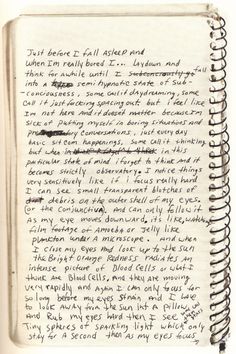 Just before I fall asleep and
when Im really bored I... Laydown and
think for awhile until I subconsciously fall
into a semi hypnotic state of sub-
consciousness, some call it daydreaming, some
call it just fucking spacing out but i feel like
Im not here and it doesnt matter because Im
sick of putting myself in boring situations and
pre conversations, just every day
basic sitcom happenings, some call it thinking
but when in this
particular state of mind i forget to think and it
becomes strictly observatory. I notice things
very sensitively like if I focus really hard
I can see small transparent blotches of
debris on the outer shell of my eyes
(or the conjunctiva). and can only follow it
as my eye moves downward, its like watching
film footage of amoeba or Jelly like
plankton under a microscope. and when
I close my eyes and look up to the sun
the Bright orange Redness radiates an
intense picture of Blood cells or what i
think are Blood cells and they are moving
very rapidly and again I can only focus for
so long before my eyes strain and I have
to look away from the sun into a pillow
and Rub my eyes hard then I see
Tiny spheres of sparkling light which only
stay for a second then as my eyes focus